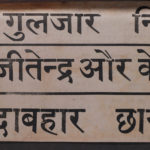 गुलजार नि
जीतेन्द्र और के
दाबहार छा